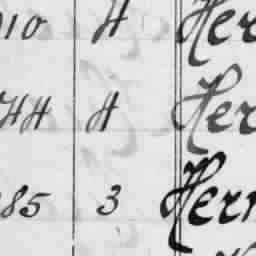 010 4 Her
744 4 Her
385 3 Herr